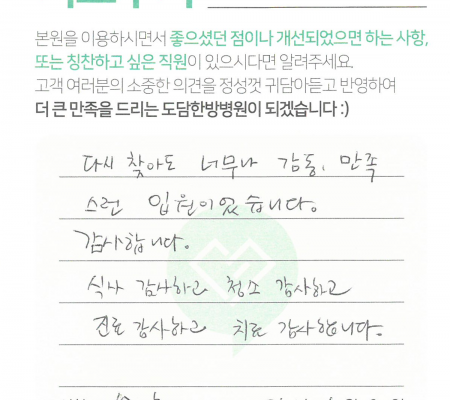 본원을 이용하시면서 좋으셨던 점이나 개선되었으면 하는 사항,
또는 칭찬하고 싶은 직원이 있으시다면 알려주세요.
고객 여러분의 소중한 의견을 정성껏 귀담아듣고 반영하여
더 큰 만족을 드리는 도담한방병원이 되겠습니다 :)
다시 찾아도 너무나 감동, 만족
스런 입원이었습니다.
감사합니다.
식사 감사하고 청소 감사하고
진료 감사하고 치료 감사합니다.